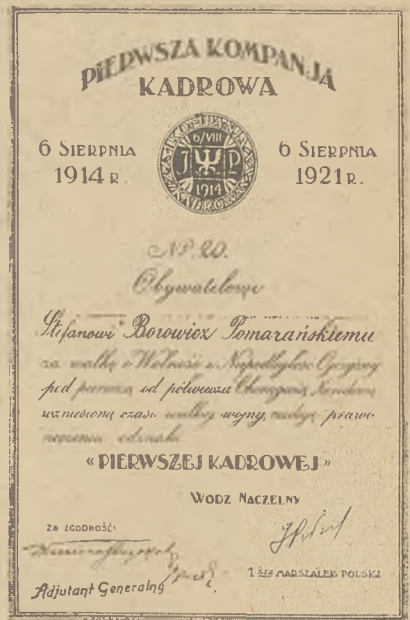 PIERWSZA KOMPANJA
KADROWA
6 SIERPNIA
1914 R.
6/VIII
J P
1914
6 SIERPNIA
1921 R.
Nr 20.
Obywatelowi
Stefanowi Borowicz Pomarańskiemu
za walkę o Wolność i Niepodległość Ojczyzny
pod pierwszą od półwiecza Chorągwią
wzniesioną czasu wielkiej wojny, nadaję prawo
noszenia odznaki
« PIERWSZEJ KADROWEJ »
WÓDZ NACZELNY
ZA ZGODNOŚĆ:
Adjutant Generalny
1 SZY MARSZAŁEK POLSKI